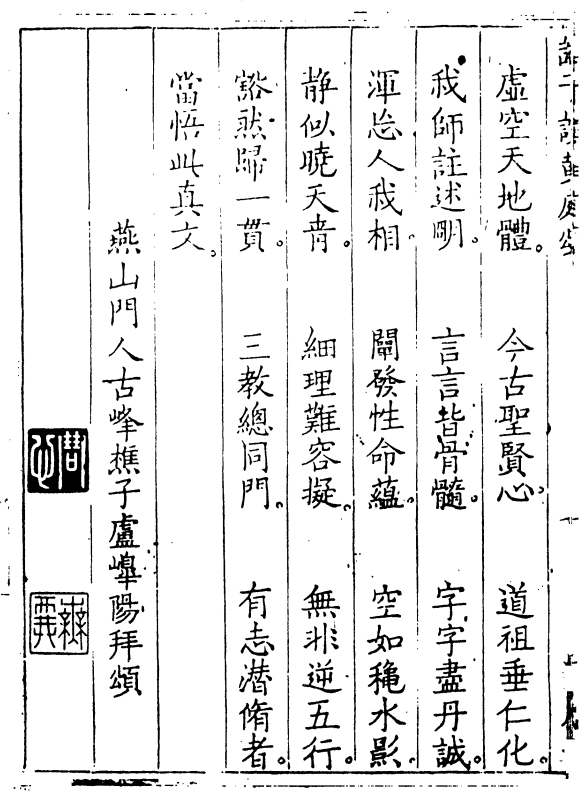 虛空天地體。 今古聖賢心。 道祖垂仁化。
我師註述明。 言言皆骨髓。 字字盡丹誠。
渾忘人我相。 闡發性命蘊。 空如穐水影。
靜似曉天音。 細理難容擬。 無非逆五行。
豁然歸一貫。 三教總同門。 有志潛脩者。
當悟此真文。
燕山門人古峰樵子盧皞陽拜頌